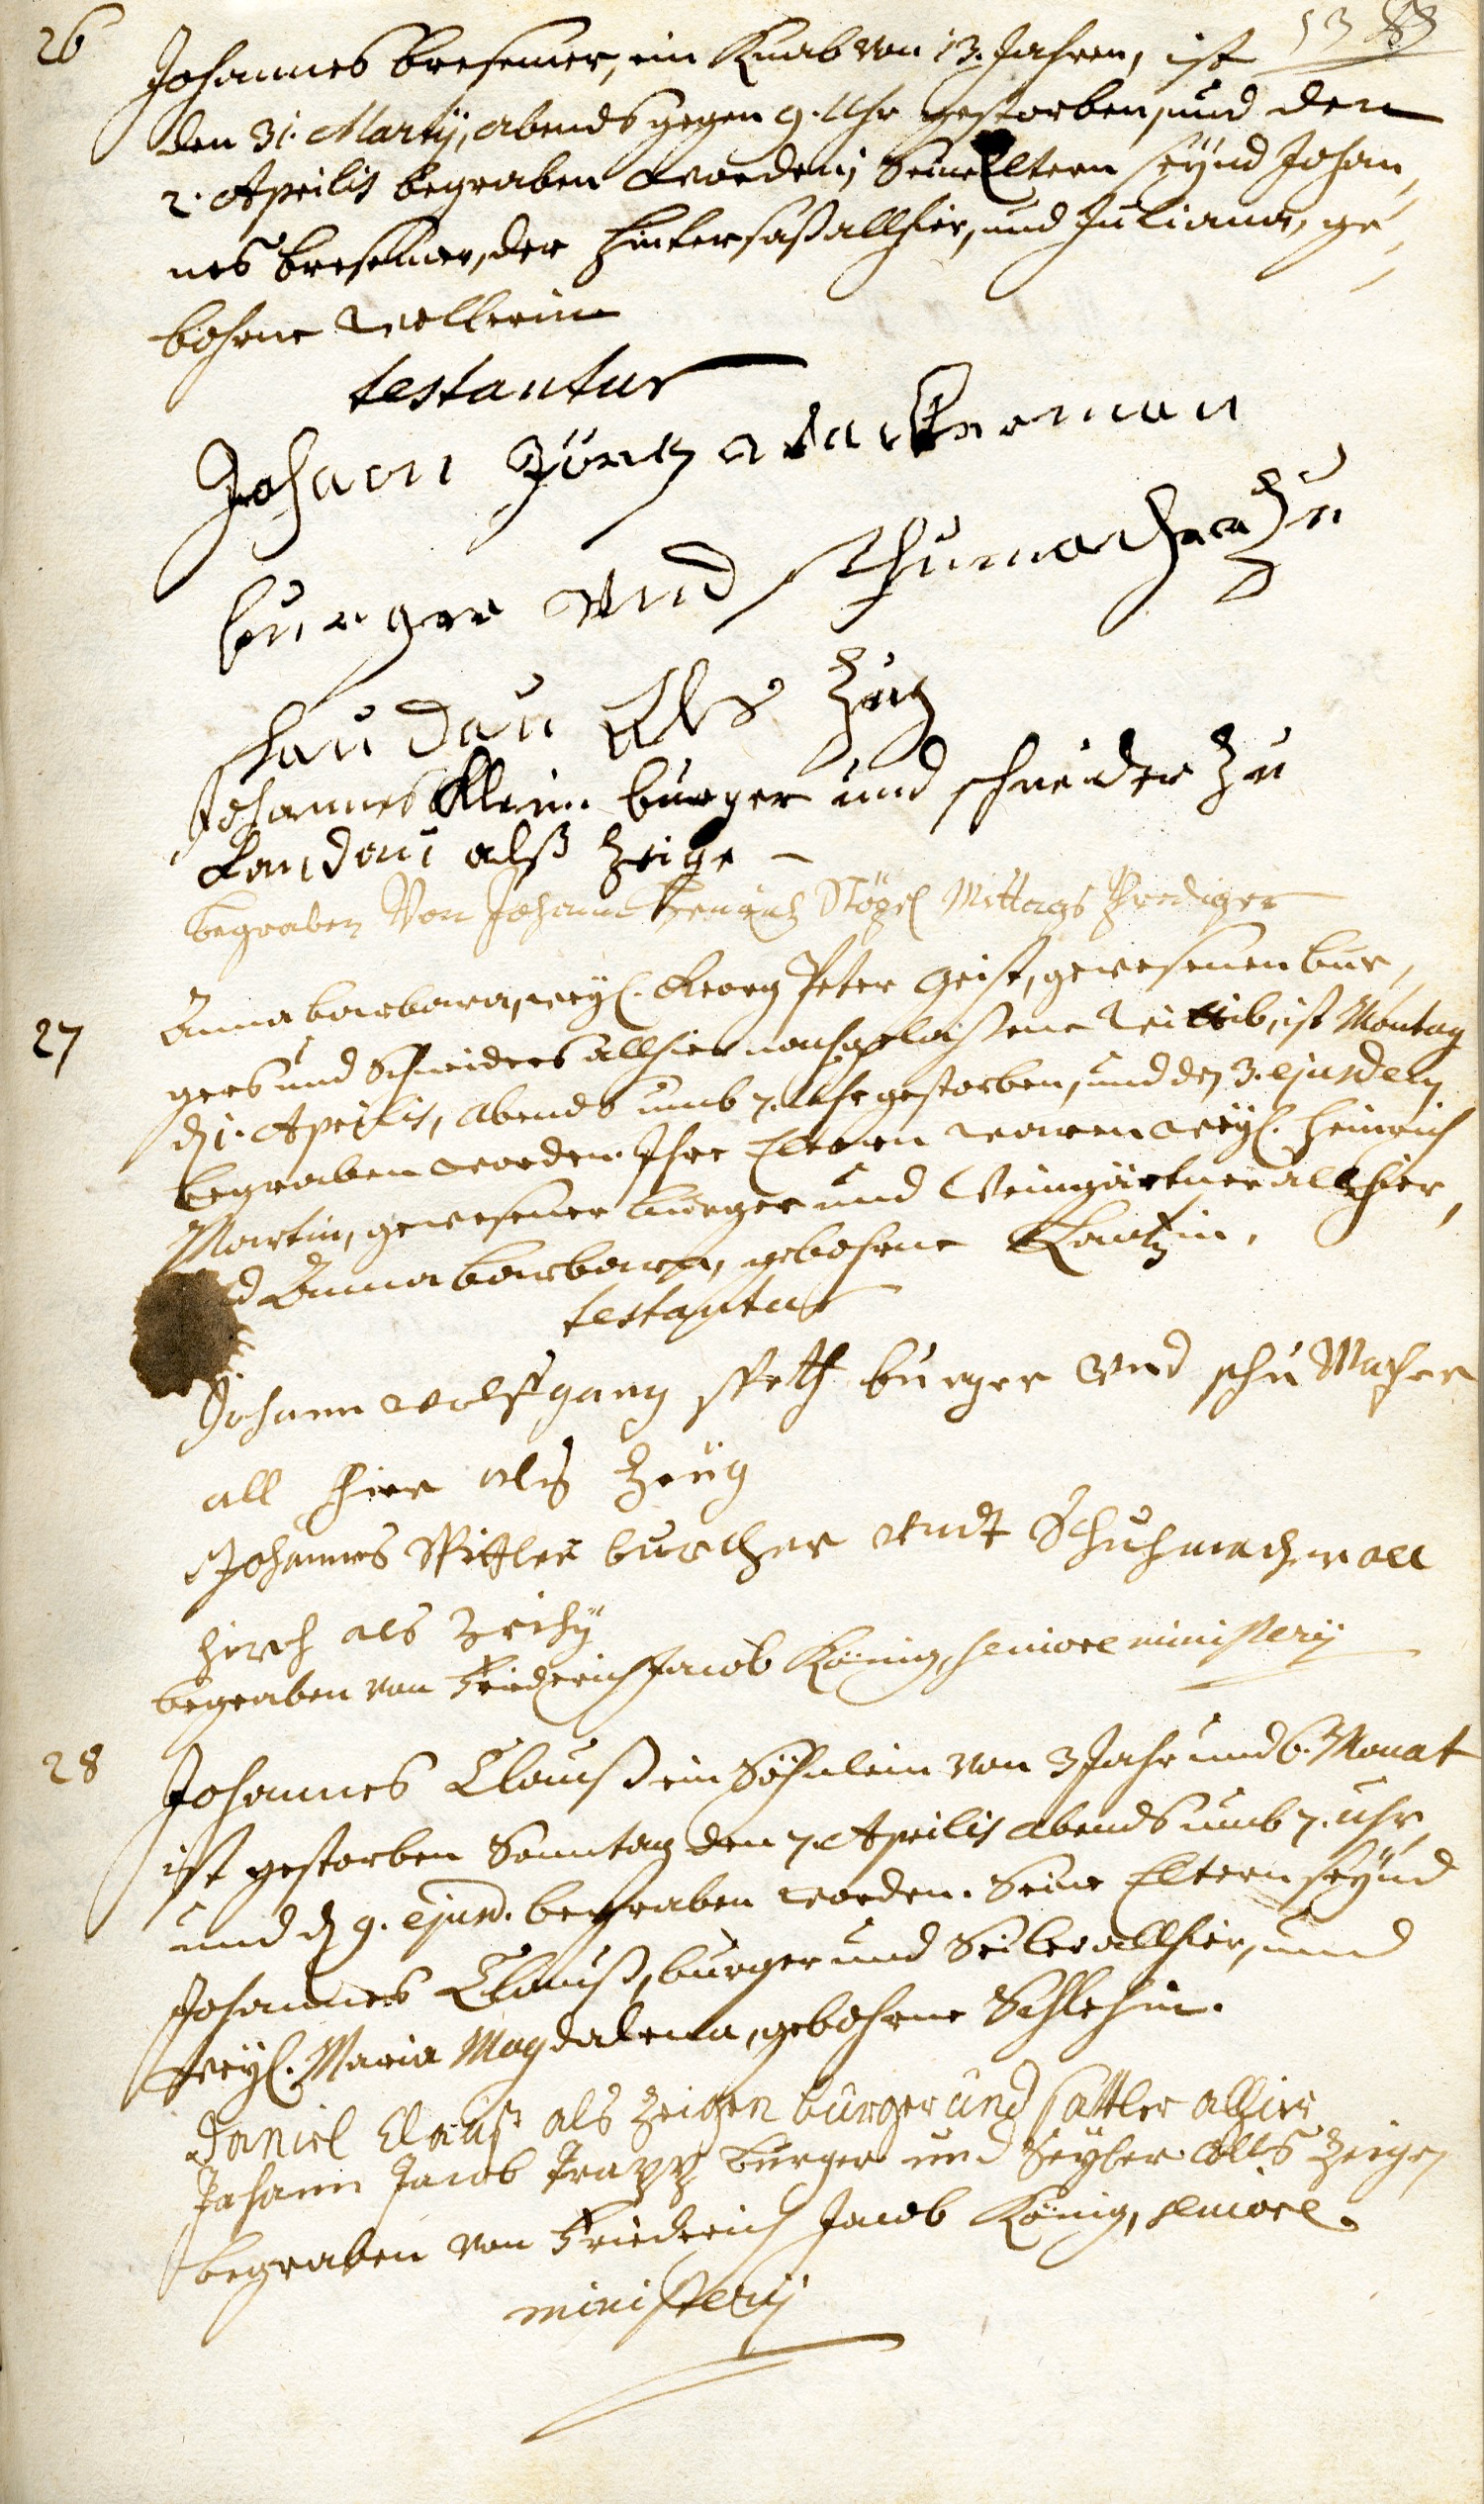 26 Johannes Bresemer, ein Knab von 13. Jahren, ist
den 31. Martij, abends gegen 9. Uhr gestorben, und den
2. Aprilis begraben worden; Seine Eltern seynd Johan,
nes Bresemer, der Hintersaß allhier, und Juliana, ge,
bohrne Wellerin
testantur
Johann Jörg Wackerman
burger vnd schumacher zu
landau als Zeug
Johannes Klein burger und schneider zu
Landau alß Zeige
begraben von Johann Mittags Prediger
27 Anna Barbara, weyl. Georg Peter Geist, gewesenen bur,
gers und Schneiders allhier nachgelaßene Wittib, ist Montag
d. 1. Aprilis, abends umb 7. Uhr gestorben, und den 3. ejusdem
begraben worden. Ihre Eltern waren weyl. Heinrich
Martin, gewesener burger und Weingärtner allhier,
Anna Barbara, gebohrne Lantzin.
testantur
Johann wolffgang speth burger vnd schu Macher
all hier als Zeug
Johannes Spittler burcher vndt Schuhmacher all
hier als
begraben von Friderich Jacob König, seniore ministerij
28 Johannes Clauß ein Söhnlein von 3 Jahr und 6. Monat
ist gestorben Sonntag den 7. Aprilis abends umb 7. Uhr,
und d. 9. ejusd. begraben worden. Seine Eltern seynd
Johannes Clauß, burger und Seiler allhier, und
weyl. Maria Magdalena, gebohrne Schlehin.
Daniel Clauß als Zeigen burger und sattler alhier
Johann Jacob Trapp burger und Seyler alls Zeigen
begraben von Friederich Jacob König, seniore
ministerij